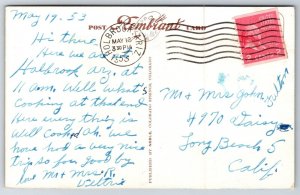 May 19. 53
POST Rembrandt CARD
Hi there
HOLBROOK
MAY 18
3 30 PM
1953
ARIZ.
Here we are
Holbrook Ariz. at
11 A.M. Well what's
Cooking at that end
Here every thing is
Well Cooked ok. we
have had a very nice
trip so far good by
love Mr & Mrs R.
Mr & Mrs John
4970 Daisy
Long Beach 5
Calif.